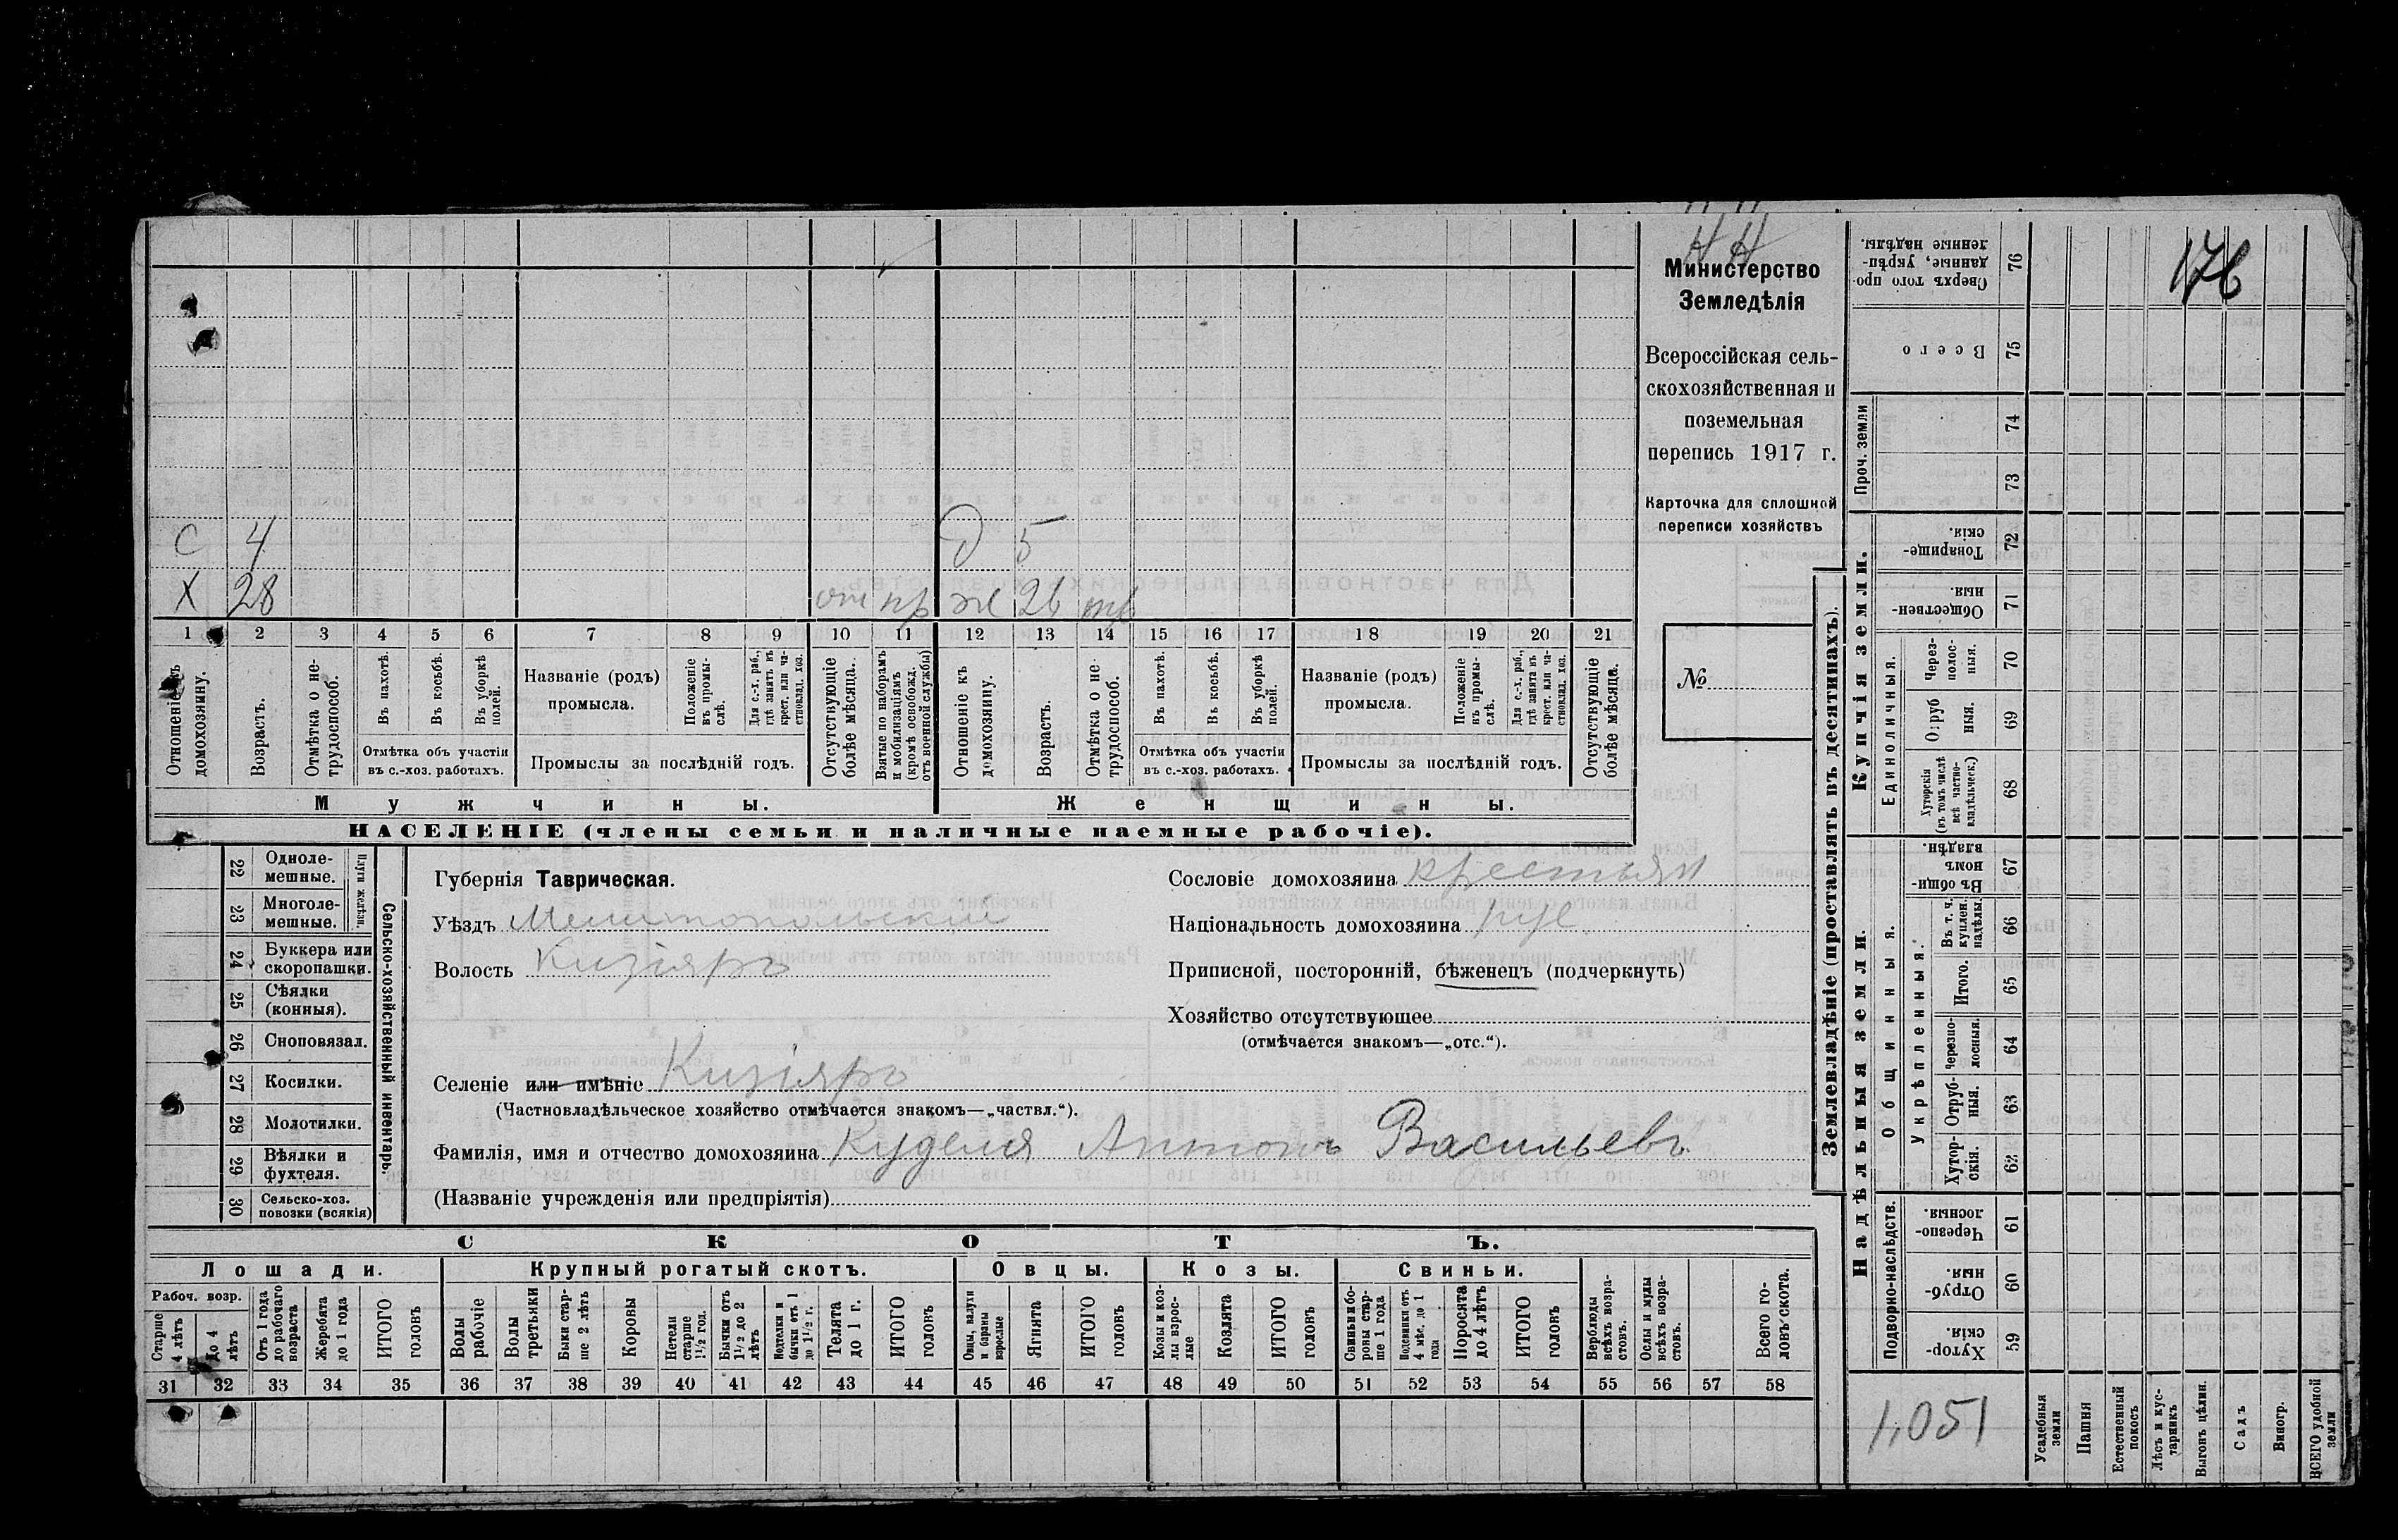 Н Н
176
Министерство
Земледѣлія
Всероссійская сель-
скохозяйственная и
поземельная
перепись 1917 г.
Карточка для сплошной
переписи хозяйствъ
№
С 4 Д 5
Х 28 от пр ж 26 тр
1 2 3 4 5 6 7 8 9 10 11 12 13 14 15 16 17 18 19 20 21
Отношеніе къ домохозяину.
Возрастъ.
Отмѣтка о не-трудоспособ.
Въ пахотѣ.
Въ косьбѣ.
Въ уборкѣ полей.
Отмѣтка объ участіи
въ с.-хоз. работахъ.
Названіе (родъ)
промысла.
Положеніе въ промы-слѣ.
Для с.-х. раб., гдѣ занятъ въ крест. или ча-стновлад. хоз.
Промыслы за послѣдній годъ.
Отсутствующіе болѣе мѣсяца.
Взятые по наборамъ и мобилизаціямъ (кромѣ освобожд. отъ военной службы)
Отношеніе къ домохозяину.
Возрастъ.
Отмѣтка о не-трудоспособ.
Въ пахотѣ.
Въ косьбѣ.
Въ уборкѣ полей.
Отмѣтка объ участіи
въ с.-хоз. работахъ.
Названіе (родъ)
промысла.
Положеніе въ промы-слѣ.
Для с.-х. раб., гдѣ занята въ крест. или ча-стновлад. хоз.
Промыслы за послѣдній годъ.
Отсутствующіе болѣе мѣсяца.
Мужчины. Женщины.
НАСЕЛЕНІЕ (члены семьи и наличные наемные рабочіе).
22 Одноле-мешные.
23 Многоле-мешные.
Плуги желѣзн.
24 Буккера или скоропашки.
25 Сѣялки (конныя).
26 Сноповязал.
27 Косилки.
28 Молотилки.
29 Вѣялки и фухтеля.
30 Сельско-хоз. повозки (всякія)
Сельско-хозяйственный инвентарь.
Губернія Таврическая.
Уѣздъ Мелитопольский
Волость Кизіяръ
Селеніе или имѣніе Кизіяръ
(Частновладѣльческое хозяйство отмѣчается знакомъ—„частвл.“).
Фамилія, имя и отчество домохозяина Куделя Антонъ Васильевъ
(Названіе учрежденія или предпріятія)
Сословіе домохозяина крестьян
Національность домохозяина рус
Приписной, посторонній, бѣженецъ (подчеркнуть)
Хозяйство отсутствующее
(отмѣчается знакомъ—„отс.“).
СКОТЪ.
Лошади. Крупный рогатый скотъ. Овцы. Козы. Свиньи.
Рабоч. возр.
Старше 4 лѣтъ
До 4 лѣтъ
Отъ 1 года до рабочаго возраста
Жеребята до 1 года
ИТОГО головъ
Волы рабочіе
Волы третьяки
Быки стар-ше 2 лѣтъ
Коровы
Нетели старше 1½ год.
Бычки отъ 1½ до 2 лѣтъ
Нетелки и бычки отъ 1 до 1½ г.
Телята до 1 г.
ИТОГО головъ
Овцы, валухи и бараны взрослые
Ягнята
ИТОГО головъ
Козы и коз-лы взрос-лые
Козлята
ИТОГО головъ
Свиньи и бо-ровы стар-ше 1 года
Подсвинки отъ 4 мѣс. до 1 года
Поросята до 4 лѣтъ
ИТОГО головъ
Верблюды всѣхъ возра-стовъ.
Ослы и мулы всѣхъ возра-стовъ.
Всего го-ловъ скота.
31 32 33 34 35 36 37 38 39 40 41 42 43 44 45 46 47 48 49 50 51 52 53 54 55 56 57 58
Землевладѣніе (проставлять въ десятинахъ).
Сверхъ того про-данные, укрѣп-ленные надѣлы. 76
Всего 75
Проч. земли
74
73
Купчія земли.
Товарище-скія. 72
Обществен-ныя. 71
Единоличныя.
Через-полос-ныя. 70
Отруб ныя. 69
Хуторскія (въ томъ числѣ всѣ частно-владѣльческ.) 68
Надѣльныя земли.
Общинныя.
Въ общин-номъ владѣн. 67
Укрѣпленныя.
Въ т. ч. куплен. надѣлы. 66
Итого. 65
Черезпо-лосныя. 64
Отруб-ныя. 63
Хутор-скія. 62
Подворно-наслѣдств.
Черезпо-лосныя. 61
Отруб-ныя. 60
Хутор-скія. 59
1,051
Усадебныя земли
Пашня
Естественный покосъ
Лѣсъ и кус-тарникъ
Выгонъ цѣлин.
Садъ
Виногр.
ВСЕГО удобной земли